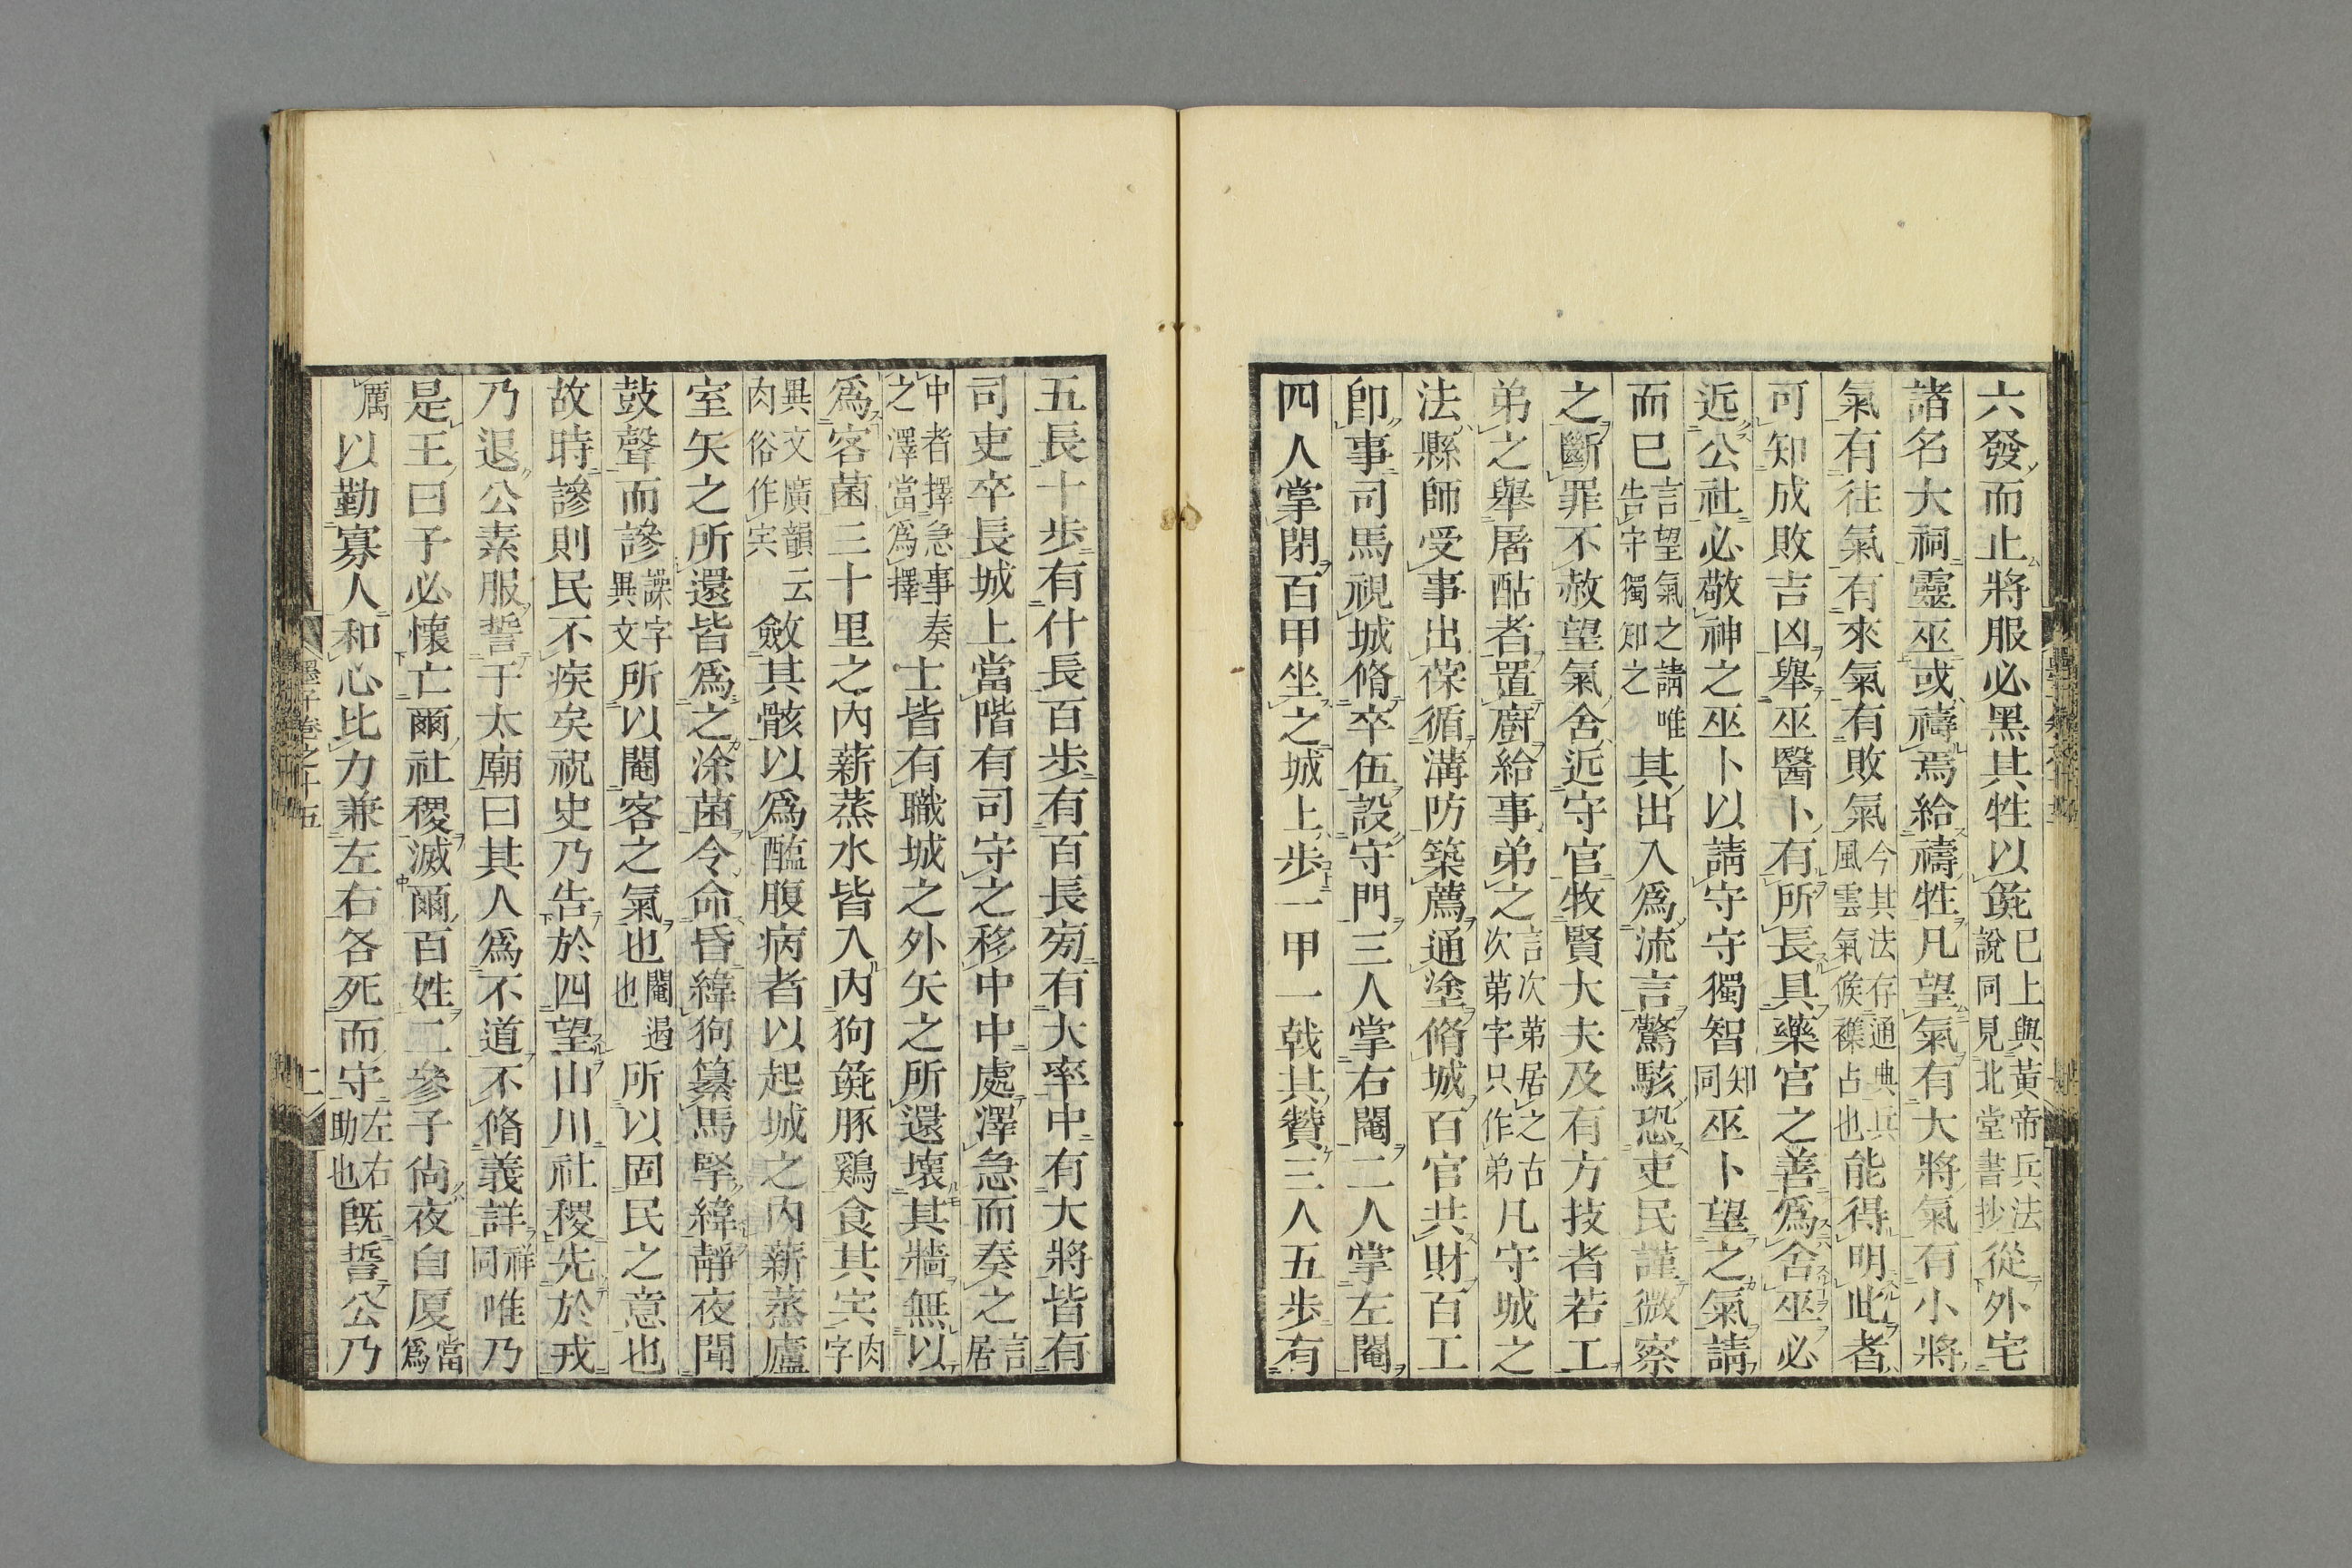 六發而止將服必黑其牲以彘巳上與黃帝兵法說同見北堂書抄從外宅
諸名大祠靈巫或禱焉給禱牲凡望氣有大將氣有小將
氣有往氣有來氣有敗氣今其法存通典兵風雲氣候襍占也能得明此者
可知成敗吉凶舉巫醫卜有所長具藥官之善爲舍巫必
近公社必敬神之巫卜以請守守獨智知同巫卜望之氣請
而巳言望氣之請唯告守獨知之其出入爲流言驚駭恐吏民謹微察
之斷罪不赦望氣舍近守官牧賢大夫及有方技者若工
弟之舉屠酤者置廚給事弟之言次第居之古次第字只作弟凡守城之
法縣師受事出葆循溝防築薦通塗脩城百官共財百工
卽事司馬視城脩卒伍設守門三人掌右閹二人掌左閹
四人掌閉百甲坐之城上步一甲一戟其贊三人五步有
五長十步有什長百步有百長㫄有大率中有大將皆有
司吏卒長城上當階有司守之移中中處澤急而奏之言居
中者擇急事奏之澤當爲擇士皆有職城之外矢之所還壞其牆無以
爲客菌三十里之內薪蒸水皆入內狗彘豚鷄食其宍肉字
異文廣韻云肉俗作宍斂其骸以爲醢腹病者以起城之內薪蒸廬
室矢之所還皆爲之涂菌令命昏緯狗纂馬掔緯靜夜聞
鼓聲而謲譟字異文所以閹客之氣也閹遏也所以固民之意也
故時謲則民不疾矣祝史乃告於四望山川社稷先於戎
乃退公素服誓于太廟曰其人爲不道不脩義詳祥同唯乃
是王曰予必懷亡爾社稷滅爾百姓二參子尙夜自厦當爲
厲以勤寡人和心比力兼左右各死而守左右助也旣誓公乃
墨子卷之十五